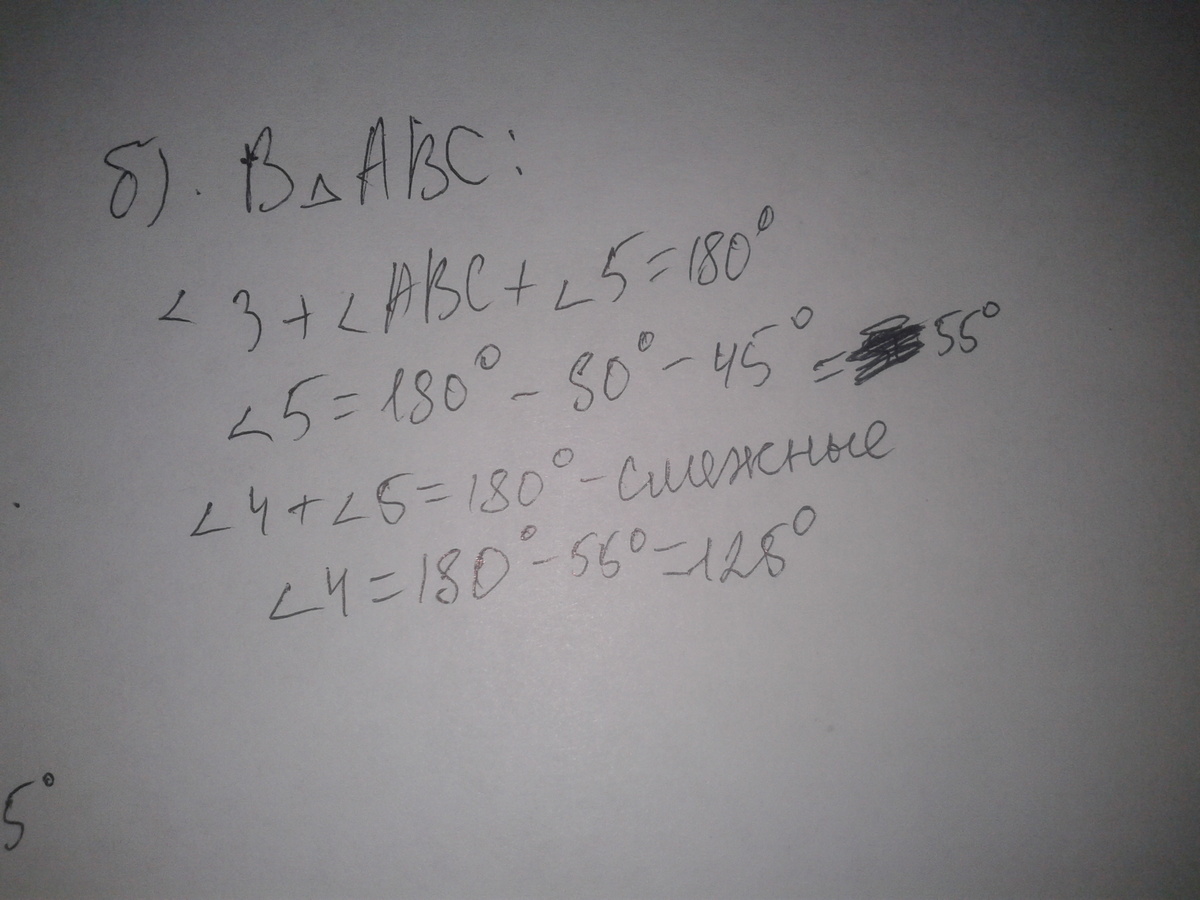 б). В △ ABC:
∠3 + ∠ABC + ∠5 = 180°
∠5 = 180° - 80° - 45° = 55°
∠4 + ∠5 = 180° - смежные
∠4 = 180° - 55° = 125°
5°